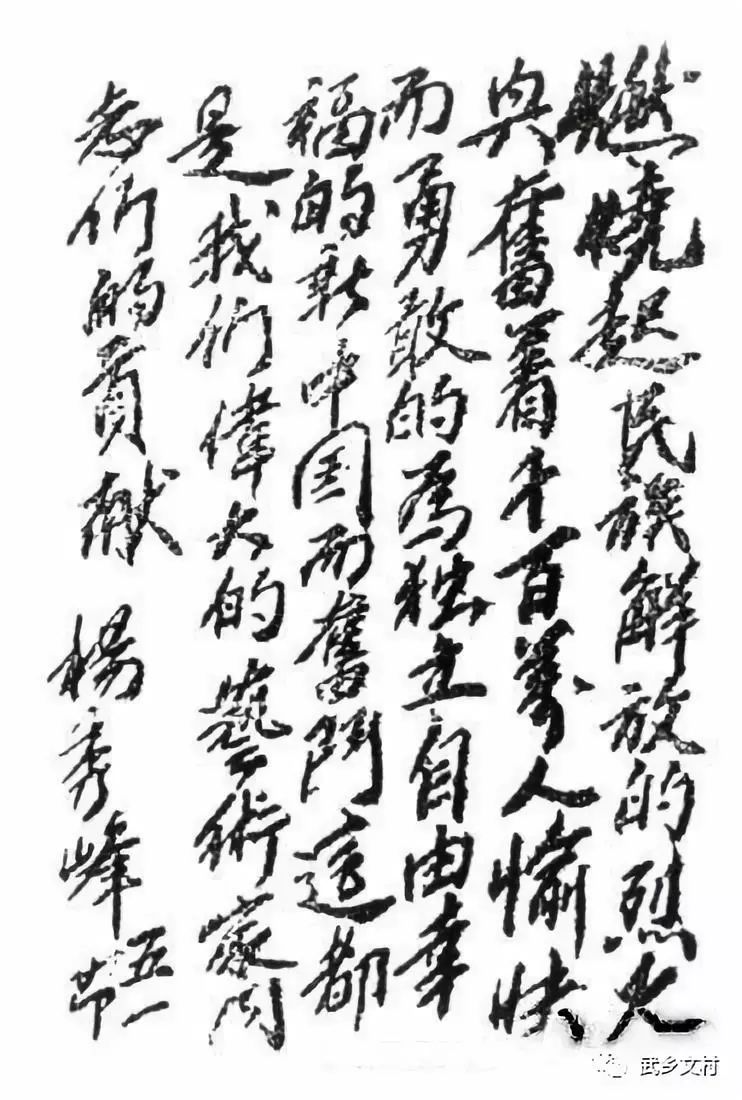 燃燒起民族解放的烈火
興奮著千百萬人愉快
而勇敢的為独立自由幸
福的新中国而奮鬥這都
是我們偉大的藝術家同
志們的貢献 楊秀峰 五一节
武乡文村